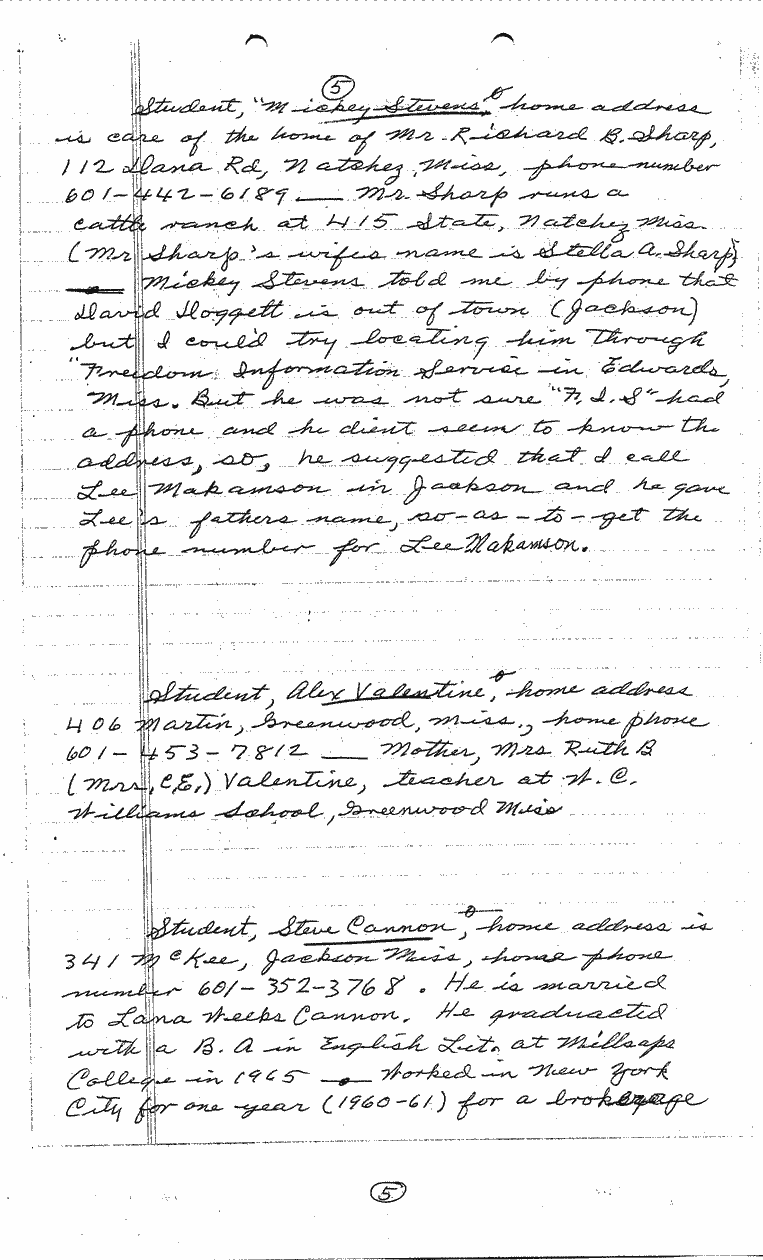 5
Student, "Mickey Stevens", home address
is care of the home of Mr. Richard B. Sharp,
112 Dana Rd, Natchez, Miss, phone number
601-442-6189 — Mr Sharp runs a
cattle ranch at 415 State, Natchez Miss.
(Mr Sharp's wifes name is Stella A. Sharp)
— Mickey Stevens told me by phone that
David Doggett is out of town (Jackson)
but I could try locating him through
"Freedom Information Service in Edwards,
Miss. But he was not sure "F. I. S" had
a phone and he dient seem to know the
address, so, he suggested that I call
Lee Makamson in Jackson and he gave
Lee's fathers name, so-as-to-get the
phone number for Lee Makamson.
Student, Alex Valentine, home address
406 Martin, Greenwood, Miss., home phone
601-453-7812 — Mother, Mrs Ruth B
(Mrs, C.E.,) Valentine, teacher at W. C.
Williams School, Greenwood Miss
Student, Steve Cannon, home address is
341 McKee, Jackson Miss, home phone
number 601-352-3768. He is married
to Lana Weeks Cannon. He graduacted
with a B. A in English Lit. at Millsaps
College in 1965 — Worked in New York
City for one year (1960-61) for a brokerage
5